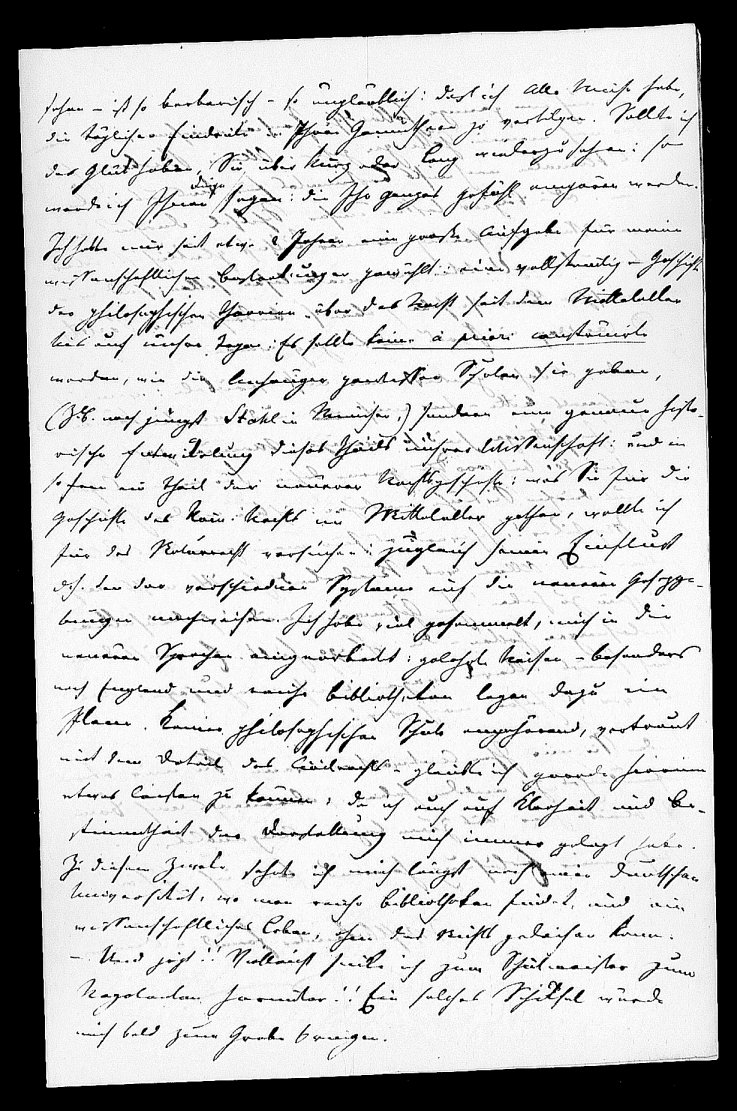 sehen – ist so barbarisch – so unglaublich: daß ich alle Mühe habe,
die täglichen Eindrücke in Ihrem zu vertilgen. Sollte ich
das Glück haben, Sie über kurz oder lang wiederzusehen: so
werde ich Ihnen Dinge sagen: die Ihr ganzes Gefühl empören werden.
Ich hatte mir seit etwa 2 Jahren eine große Aufgabe für meine
wissenschaftlichen Bestrebungen gewählt: eine vollständige Geschichte
der philosophischen Theorien über das Recht seit dem Mittelalter
bis auf unsere Tagen: Es sollte keine à priori construirte
werden, wie die Anhänger gewisser Schulen sie geben,
(z.B. noch jüngst Stahl in München) sondern eine genaue histo-
rische Entwickelung dieses Theils unserer Wissenschaft: und in
so fern ein Theil der neueren Rechtsgeschichte: was Sie für die
Geschichte des Röm. Rechts im Mittelalter gethan, wollte ich
für das Naturrecht versuchen: zugleich seinen Einfluß
d.h. den der verschiedenen Systeme auf die neueren Gesetzge-
bungen nachweisen. Ich habe viel gesammelt, mich in die
neueren Sprachen eingearbeitet: gelehrte Reisen – besonders
nach England und reiche Bibliotheken lagen dazu im
Plane. Keiner philosophischen Schule angehörend, vertraut
mit dem Detail des Civilrechts – glaubte ich gerade hierin
etwas leisten zu können, da ich auch auf Klarheit und Be-
stimmtheit der Darstellung mich immer gelegt habe.
Zu diesem Zwecke sehnte ich mich längst nach einer deutschen
Universität, wo man reiche Bibliotheken findet, und ein
wissenschaftliches Leben, ohne das Nichts gedeihen kann.
– Und jetzt!! Vielleicht sinke ich zum Schulmeister zum
herunter!! Ein solches Schicksal würde
mich bald zum Grabe bringen.